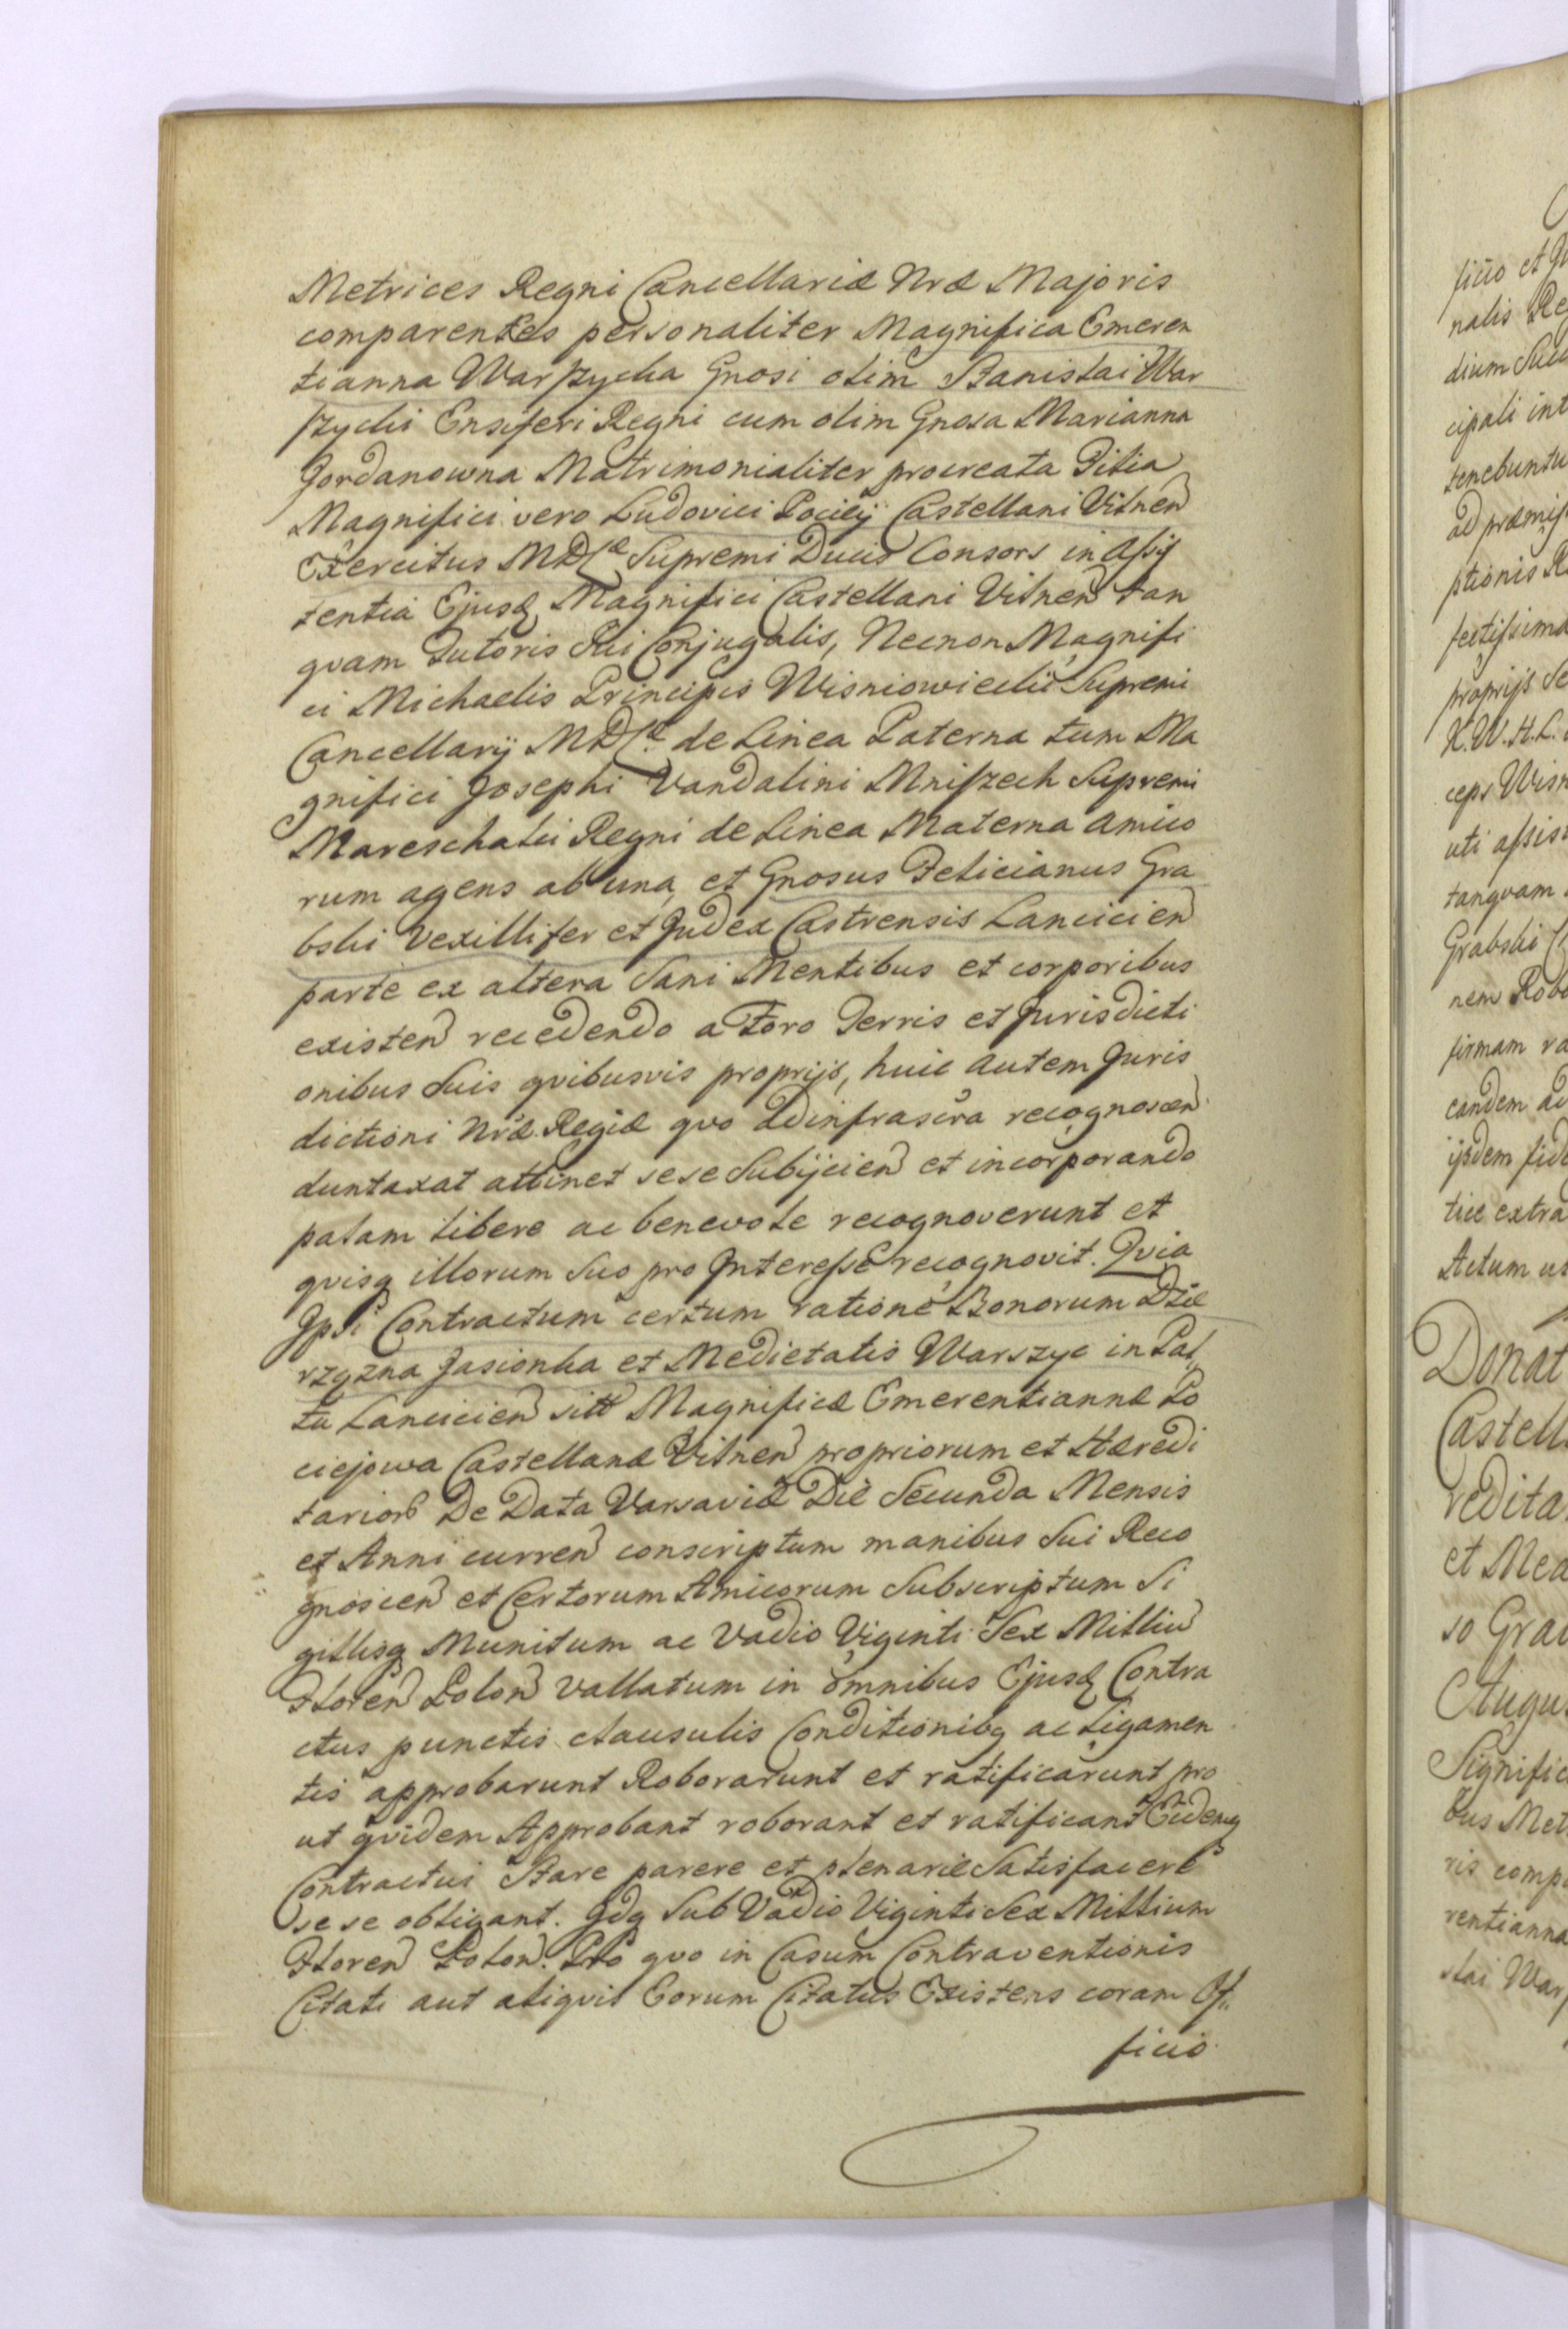 Metrices Regni Cancellariæ Nræ Majoris
comparentes personaliter Magnifica Emeren
tianna Warszycka Gnosi olim Stanislai War
szycki Ensiferi Regni cum olim Gnosa Marianna
Jordanowna Matrimonialiter procreata Filia
Magnifici vero Ludovici Pociey Castellani Vilnen
Exercitus MDLæ Supremi Ducis Consors in Assis
tentia Ejusd Magnifici Castellani Vilnen tan
qvam Tutoris Sui Conjugalis, Necnon Magnifi
ci Michaelis Principis Wisniowiecki Supremi
Cancellarij MDLæ de Linea Paterna tum Ma
gnifici Josephi Vandalini Mniszech Supremi
Mareschalci Regni de Linea Materna Amico
rum agens ab una, et Gnosus Felicianus Gra
bski Vexillifer et Judex Castrensis Lancicien
parte ex altera Sani Mentibus et corporibus
existen recedendo a Foro Terris et Jurisdicti
onibus Suis qvibusvis proprijs, huic autem Juris
dictioni Nræ Regiæ qvo ad infrascra recognoscen
duntaxat attinet sese Subijcien et incorporando
palam libere ac benevole recognoverunt et
qvisq illorum Suo pro Interesse recognovit. Qvia
Ipsi Contractum certum ratione Bonorum Dzie
rzązna Jasionka et Medietatis Warszyc in Pal
tu Lancicien sitt Magnificæ Emerentiannæ Po
ciejowa Castellanæ Vilnen propriorum et Hæredi
tarior De Data Varsaviæ Die Secunda Mensis
et Anni curren conscriptum manibus Sui Reco
gnoscen et Certorum Amicorum Subscriptum Si
gillisq Munitum ac Vadio Viginti Sex Milliu
Floren Polon vallatum in omnibus Ejusd Contra
ctus punctis clausulis Conditionibq ac Ligamen
tis approbarunt Roborarunt et ratificarunt pro
ut qvidem Approbant roborant et ratificant Eidemq
Contractui Stare parere et plenarie Satisfacere
sese obligant. Idq Sub Vadio Viginti Sex Millium
Floren Polon. Pro qvo in Casum Contraventionis
Citati aut aliqvis Eorum Citatus Existens coram Of
ficio
ficio et
nalis Re
dium
cipali int
tenebuntu
ad præmis
ptionis R
fectissima
proprijs Se
X. W. H. L.
ceps Wisn
uti assis
tanqvam
Grabski
nem Robo
firmam
eandem
ijsdem fid
tice extra
Actum
Donat
Castell
redita
et Med
so Gra
Augu
Signific
bus Met
ris comp
rentianna
slai War